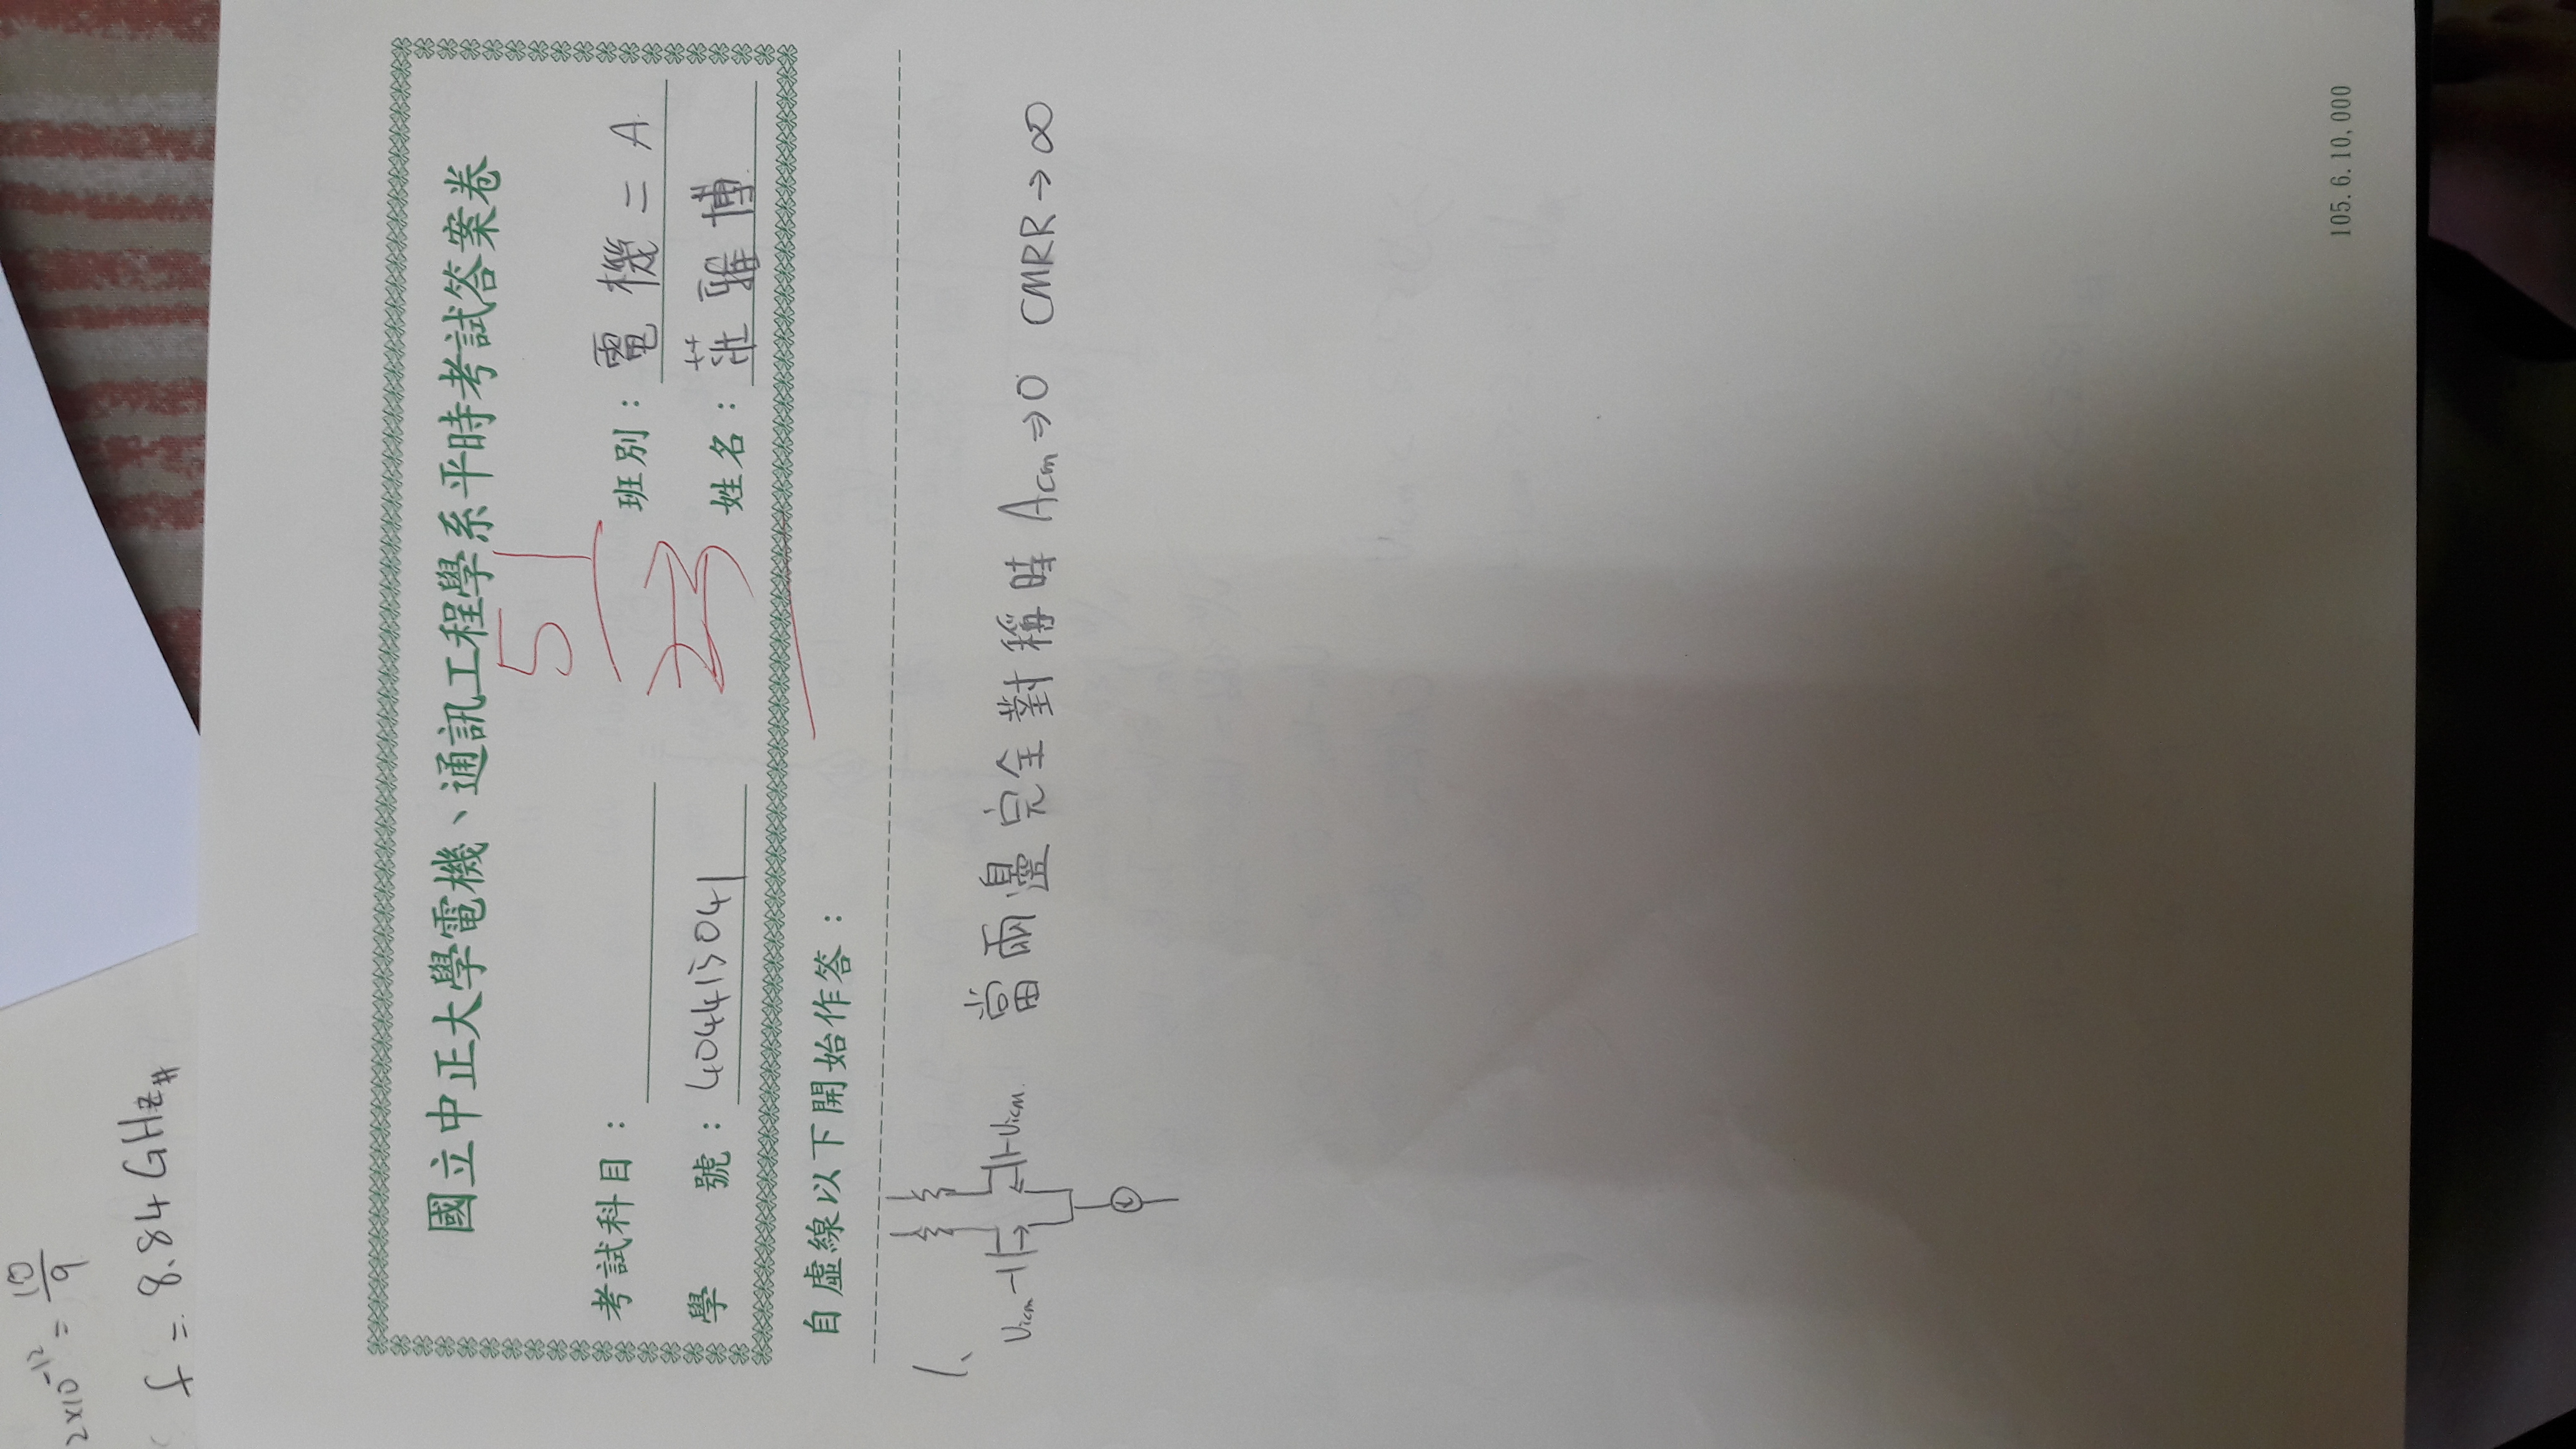 2×10⁻¹² = 10/9
f = 8.84 GHz #
國立中正大學電機、通訊工程學系平時考試答案卷
51
考試科目：
班別：電機二A
23
學 號：404415041
姓名：莊雅博
自虛線以下開始作答：
1、
Vicm Vicm
當兩邊完全對稱時 Acm ⇒ 0 CMRR → ∞
105.6.10,000